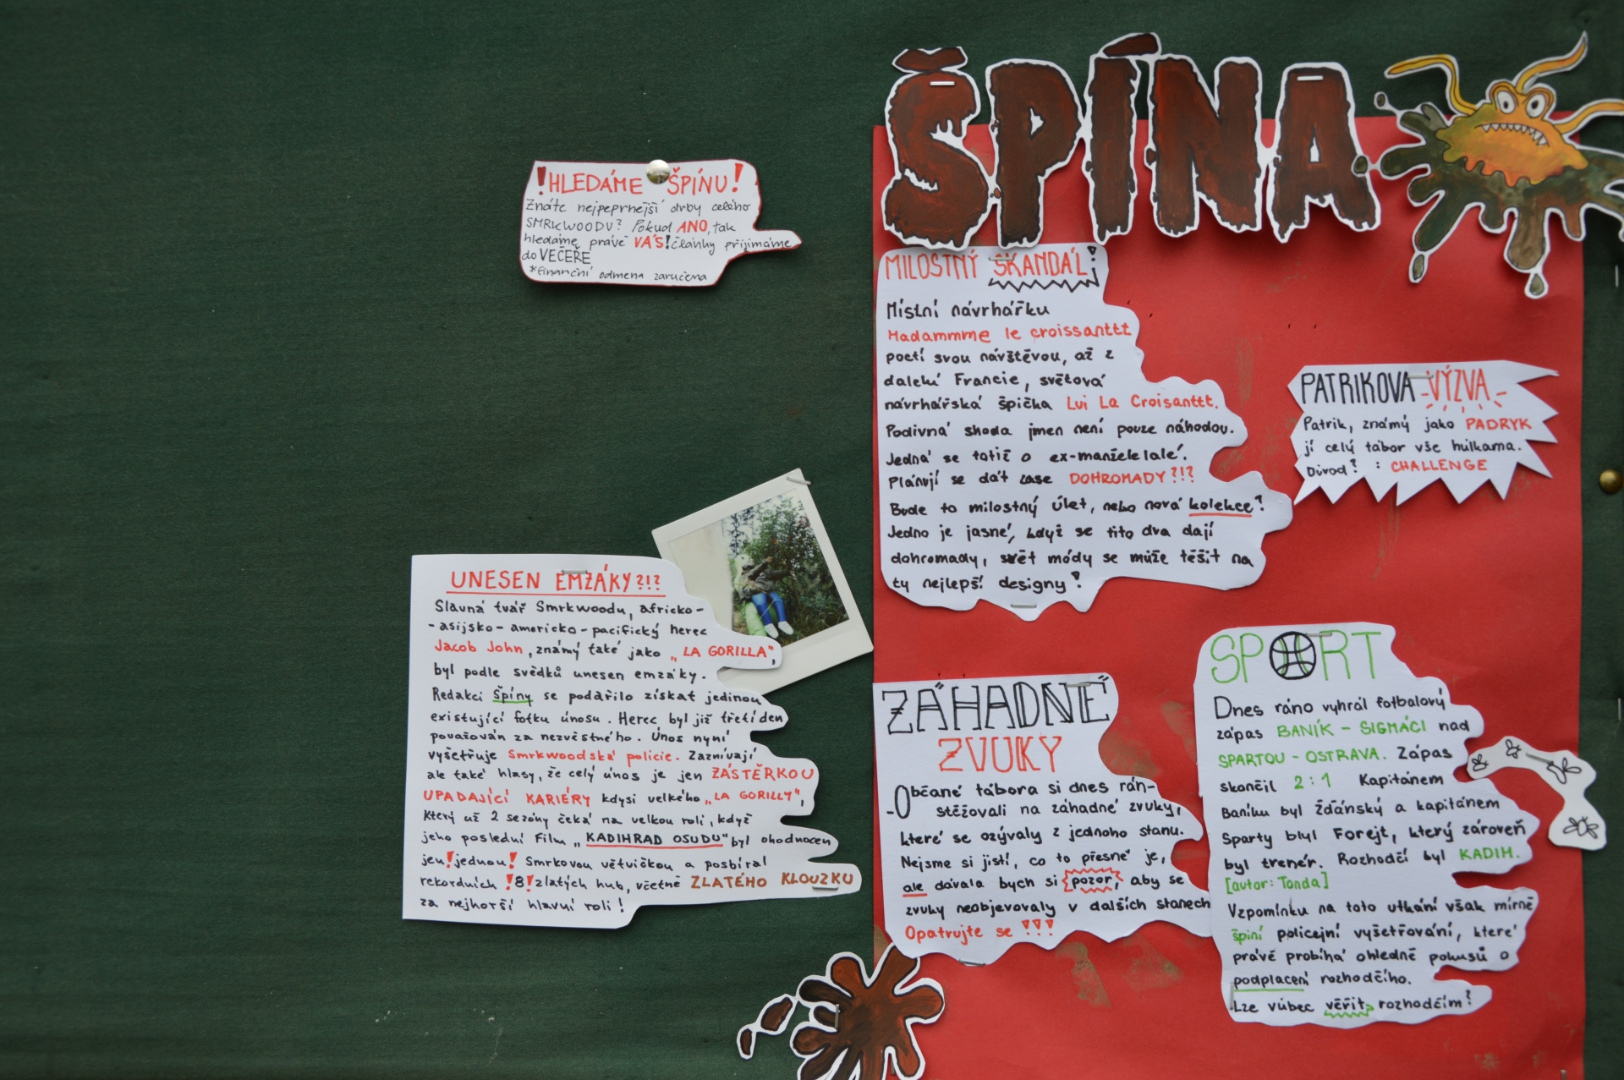 ŠPÍNA
!HLEDÁME ŠPÍNU!
Znáte nejpeprnější drby celého
SMRKWOODU? Pokud ANO, tak
hledáme právě VÁS! články přijímáme
do VEČEŘE
*Finanční odměna zaručena
MILOSTNÝ SKANDÁL!
Místní návrhářku
Madammme le croissanttt
poctí svou návštěvou, až z
daleké Francie, světová
návrhářská špička Lui La Croisanttt.
Podivná shoda jmen není pouze náhodou.
Jedná se totiž o ex-manžele lalé.
Plánují se dát zase DOHROMADY?!?
Bude to milostný úlet, nebo nová kolekce?
Jedno je jasné, když se tito dva dají
dohromady, svět módy se může těšit na
ty nejlepší designy!
PATRIKOVA VÝZVA
Patrik, známý jako PADRYK
jí celý tábor vše hůlkama.
Důvod? : CHALLENGE
UNESEN EMZÁKY?!?
Slavná tvář Smrkwoodu, africko-
-asijsko-americko-pacifický herec
Jacob John, známý také jako „LA GORILLA",
byl podle svědků unesen emzáky.
Redakci Špíny se podařilo získat jedinou
existující fotku únosu. Herec byl již třetí den
považován za nezvěstného. Únos nyní
vyšetřuje Smrkwoodská policie. Zaznívají
ale také hlasy, že celý únos je jen ZÁSTĚRKOU
UPADAJÍCÍ KARIÉRY kdysi velkého „LA GORILLY",
který už 2 sezóny čeká na velkou roli, když
jeho poslední film „KADIHRAD OSUDU" byl ohodnocen
jen !jednou! Smrkovou větvičkou a posbíral
rekordních !8! zlatých hub, včetně ZLATÉHO KLOUZKU
za nejhorší hlavní roli!
ZÁHADNÉ
ZVUKY
-Občané tábora si dnes rán-
stěžovali na záhadné zvuky,
které se ozývaly z jednoho stanu.
Nejsme si jistí, co to přesně je,
ale dávala bych si pozor, aby se
zvuky neobjevovaly v dalších stanech
Opatrujte se !!!
SPORT
Dnes ráno vyhrál fotbalový
zápas BANÍK - SIGMÁCI nad
SPARTOU - OSTRAVA. Zápas
skončil 2:1 Kapitánem
Baníku byl Žďánský a kapitánem
Sparty blyl Forejt, který zároveň
byl trenér. Rozhodčí byl KADIH.
[autor: Tonda]
Vzpomínku na toto utkání však mírně
špiní policejní vyšetřování, které
právě probíhá ohledně pokusů o
podplacení rozhodčího.
Lze vůbec věřit rozhodčím?